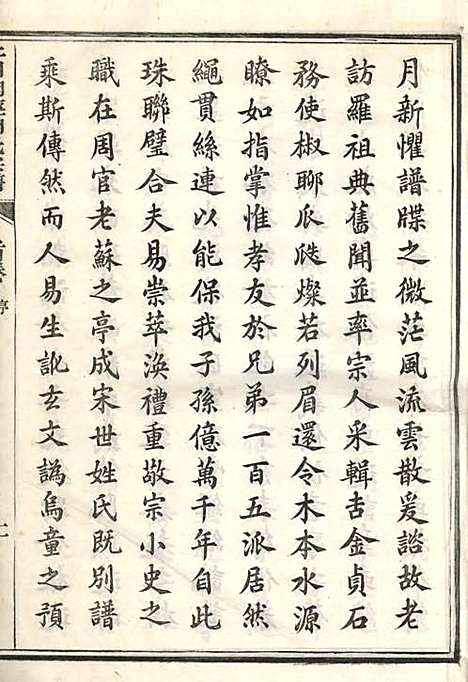 月新懼譜牒之微茫風流雲散爰諮故老
訪羅祖典舊聞並率宗人采輯吉金貞石
務使椒聊瓜瓞燦若列眉還令木本水源
瞭如指掌惟孝友於兄弟一百五派居然
繩貫絲連以能保我子孫億萬千年自此
珠聯璧合夫易崇萃渙禮重敬宗小史之
職在周官老蘇之亭成宋世姓氏既別譜
乘斯傳然而人易生訛玄文譌烏童之預